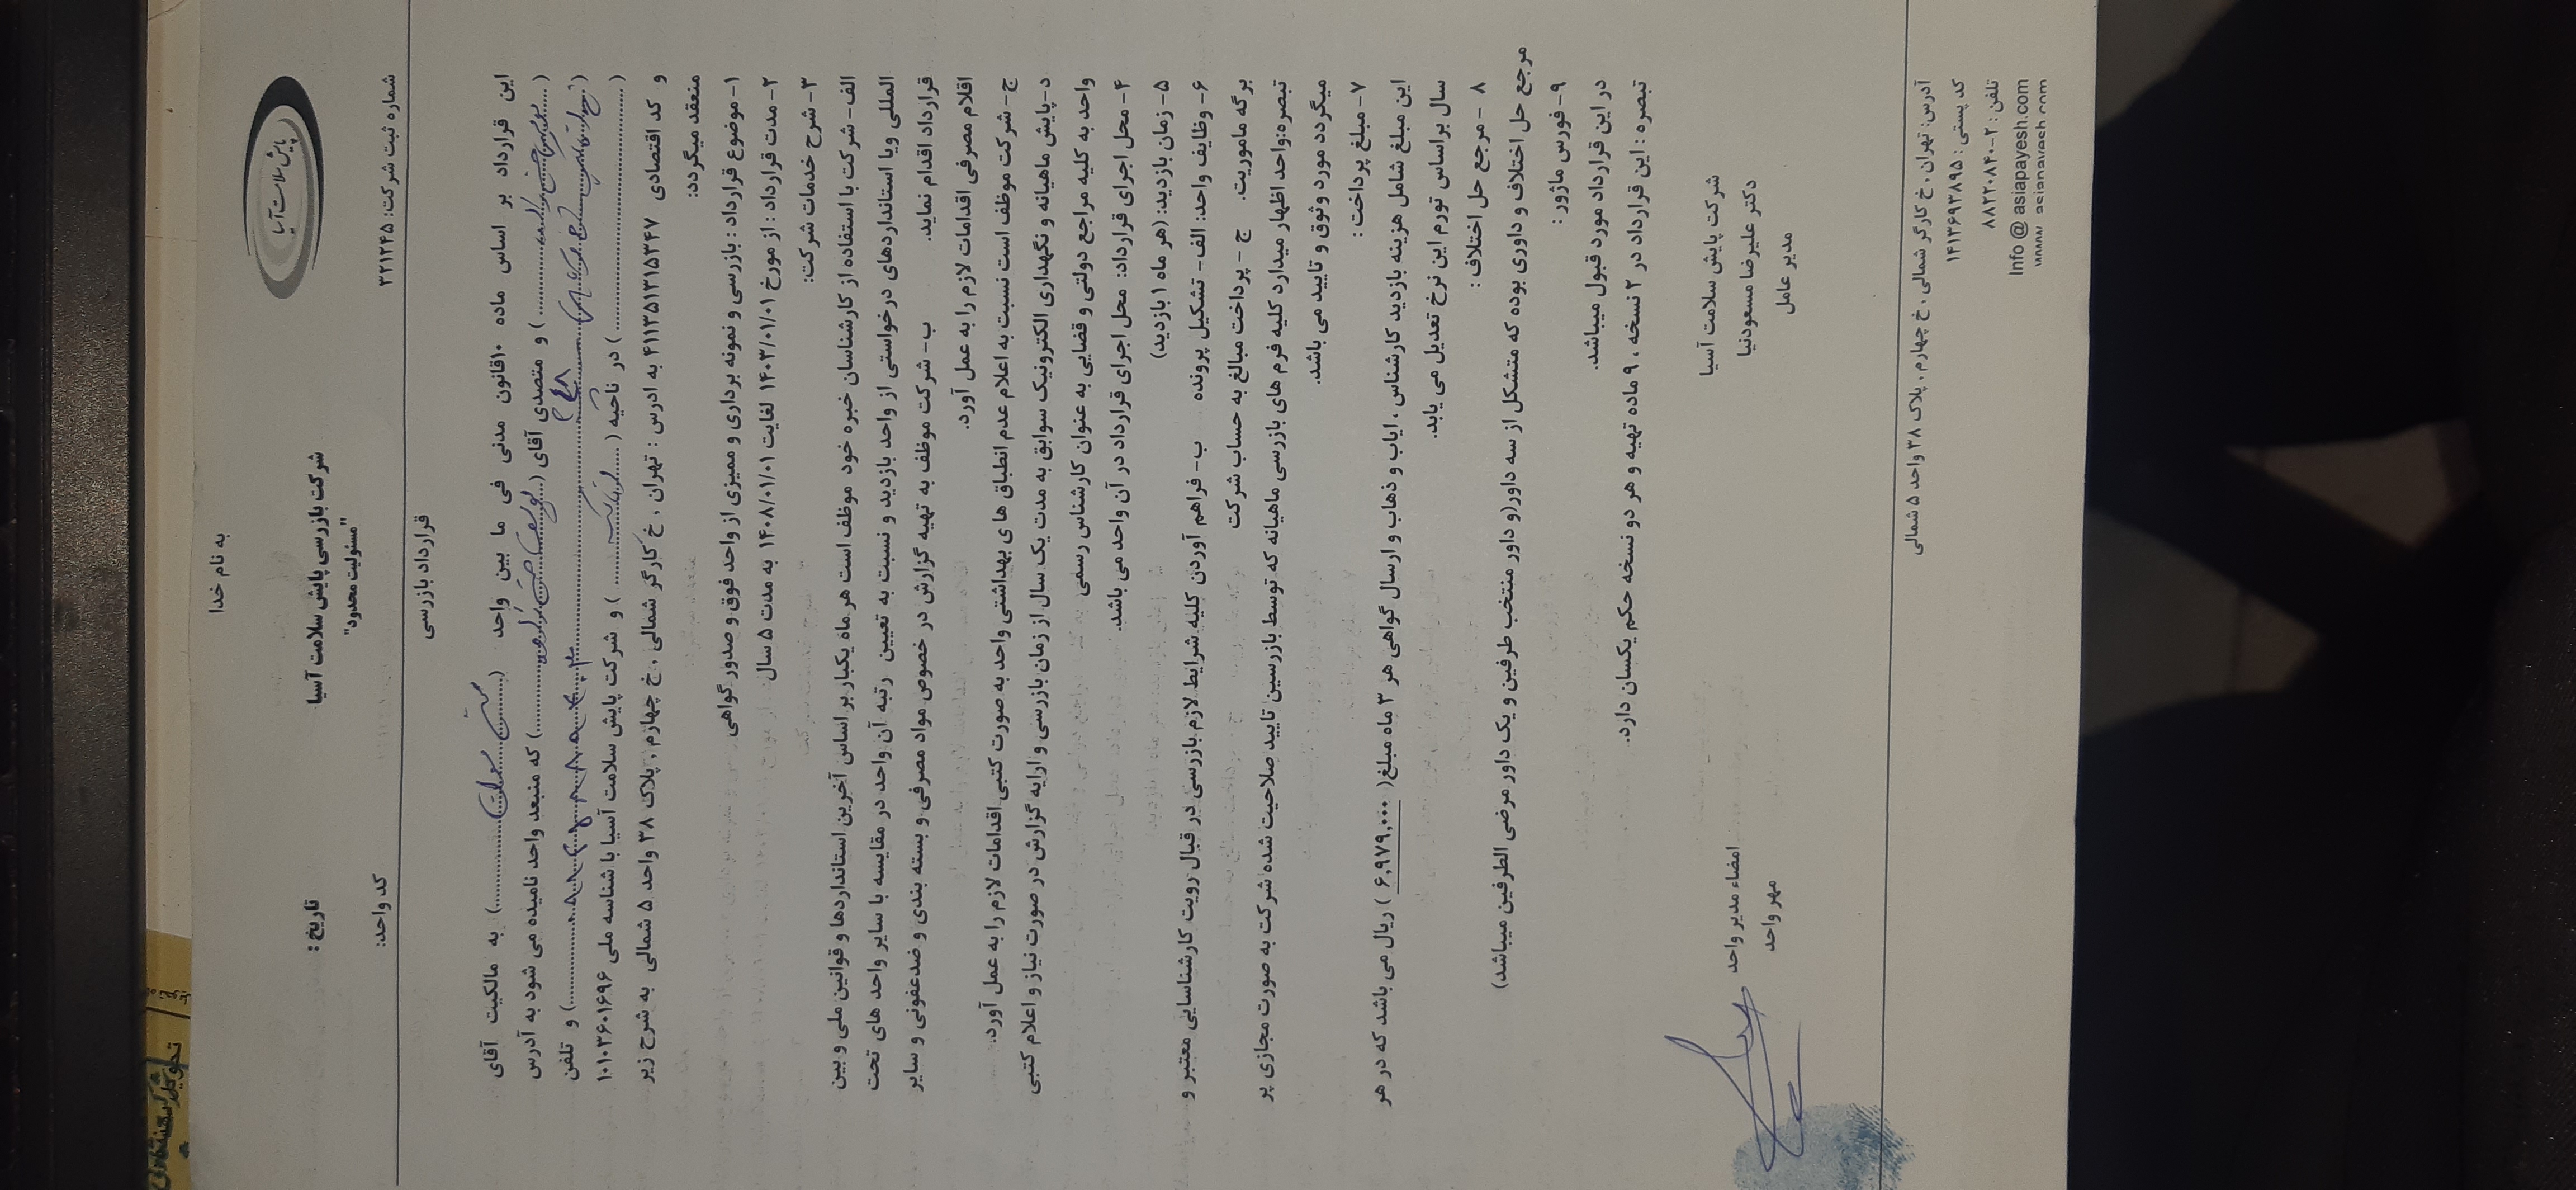 به نام خدا
پایش سلامت آسیا
شرکت بازرسی پایش سلامت آسیا
"مسئولیت محدود"
تاریخ :
شماره ثبت شرکت: ۳۲۱۲۴۵
کد واحد:
قرارداد بازرسی
این قرارداد بر اساس ماده ۱۰قانون مدنی فی ما بین واحد (............) به مالکیت آقای
(............) و متصدی آقای (............) که منبعد واحد نامیده می شود به آدرس
(............) و تلفن
(............) در ناحیه (............) و شرکت پایش سلامت آسیا با شناسه ملی ۱۰۱۰۳۶۰۱۶۹۶
و کد اقتصادی ۴۱۱۳۵۱۳۱۵۳۴۷ به ادرس : تهران ، خ کارگر شمالی ، خ چهارم ، پلاک ۳۸ واحد ۵ شمالی به شرح زیر
منعقد میگردد:
۱- موضوع قرارداد : بازرسی و نمونه برداری و ممیزی از واحد فوق و صدور گواهی
۲- مدت قرارداد : از مورخ ۱۴۰۳/۰۱/۰۱ لغایت ۱۴۰۸/۰۱/۰۱ به مدت ۵ سال
۳- شرح خدمات شرکت:
الف- شرکت با استفاده از کارشناسان خبره خود موظف است هر ماه یکبار بر اساس آخرین استانداردها و قوانین ملی و بین
المللی ویا استانداردهای درخواستی از واحد بازدید و نسبت به تعیین رتبه آن واحد در مقایسه با سایر واحد های تحت
قرارداد اقدام نماید. ب- شرکت موظف به تهیه گزارش در خصوص مواد مصرفی و بسته بندی و ضدعفونی و سایر
اقلام مصرفی اقدامات لازم را به عمل آورد.
ج- شرکت موظف است نسبت به اعلام عدم انطباق ها ی بهداشتی واحد به صورت کتبی اقدامات لازم را به عمل آورد.
د-پایش ماهیانه و نگهداری الکترونیک سوابق به مدت یک سال از زمان بازرسی و ارایه گزارش در صورت نیاز و اعلام کتبی
واحد به کلیه مراجع دولتی و قضایی به عنوان کارشناس رسمی
۴- محل اجرای قرارداد: محل اجرای قرارداد در آن واحد می باشد.
۵- زمان بازدید: (هر ماه ۱ بازدید)
۶- وظایف واحد: الف- تشکیل پرونده ب- فراهم آوردن کلیه شرایط لازم بازرسی در قبال رویت کارشناسایی معتبر و
برگه ماموریت. ج - پرداخت مبالغ به حساب شرکت
تبصره:واحد اظهار میدارد کلیه فرم های بازرسی ماهیانه که توسط بازرسین تایید صلاحیت شده شرکت به صورت مجازی پر
میگردد مورد وثوق و تایید می باشد.
۷- مبلغ پرداخت :
این مبلغ شامل هزینه بازدید کارشناس ، ایاب و ذهاب و ارسال گواهی هر ۳ ماه مبلغ( ۶,۹۷۹,۰۰۰ ) ریال می باشد که در هر
سال براساس تورم این نرخ تعدیل می یابد.
۸ - مرجع حل اختلاف :
مرجع حل اختلاف و داوری بوده که متشکل از سه داور(و داور منتخب طرفین و یک داور مرضی الطرفین میباشد)
۹- فورس ماژور :
در این قرارداد مورد قبول میباشد.
تبصره : این قرارداد در ۲ نسخه ، ۹ ماده تهیه و هر دو نسخه حکم یکسان دارد.
شرکت پایش سلامت آسیا
دکتر علیرضا مسعودنیا
مدیر عامل
امضاء مدیر واحد
مهر واحد
آدرس: تهران ، خ کارگر شمالی ، خ چهارم ، پلاک ۳۸ واحد ۵ شمالی
کد پستی : ۱۴۱۳۶۹۳۸۹۵
تلفن : ۲-۸۸۲۲۰۸۴۰
Info @ asiapayesh.com
www. asiapayesh.com